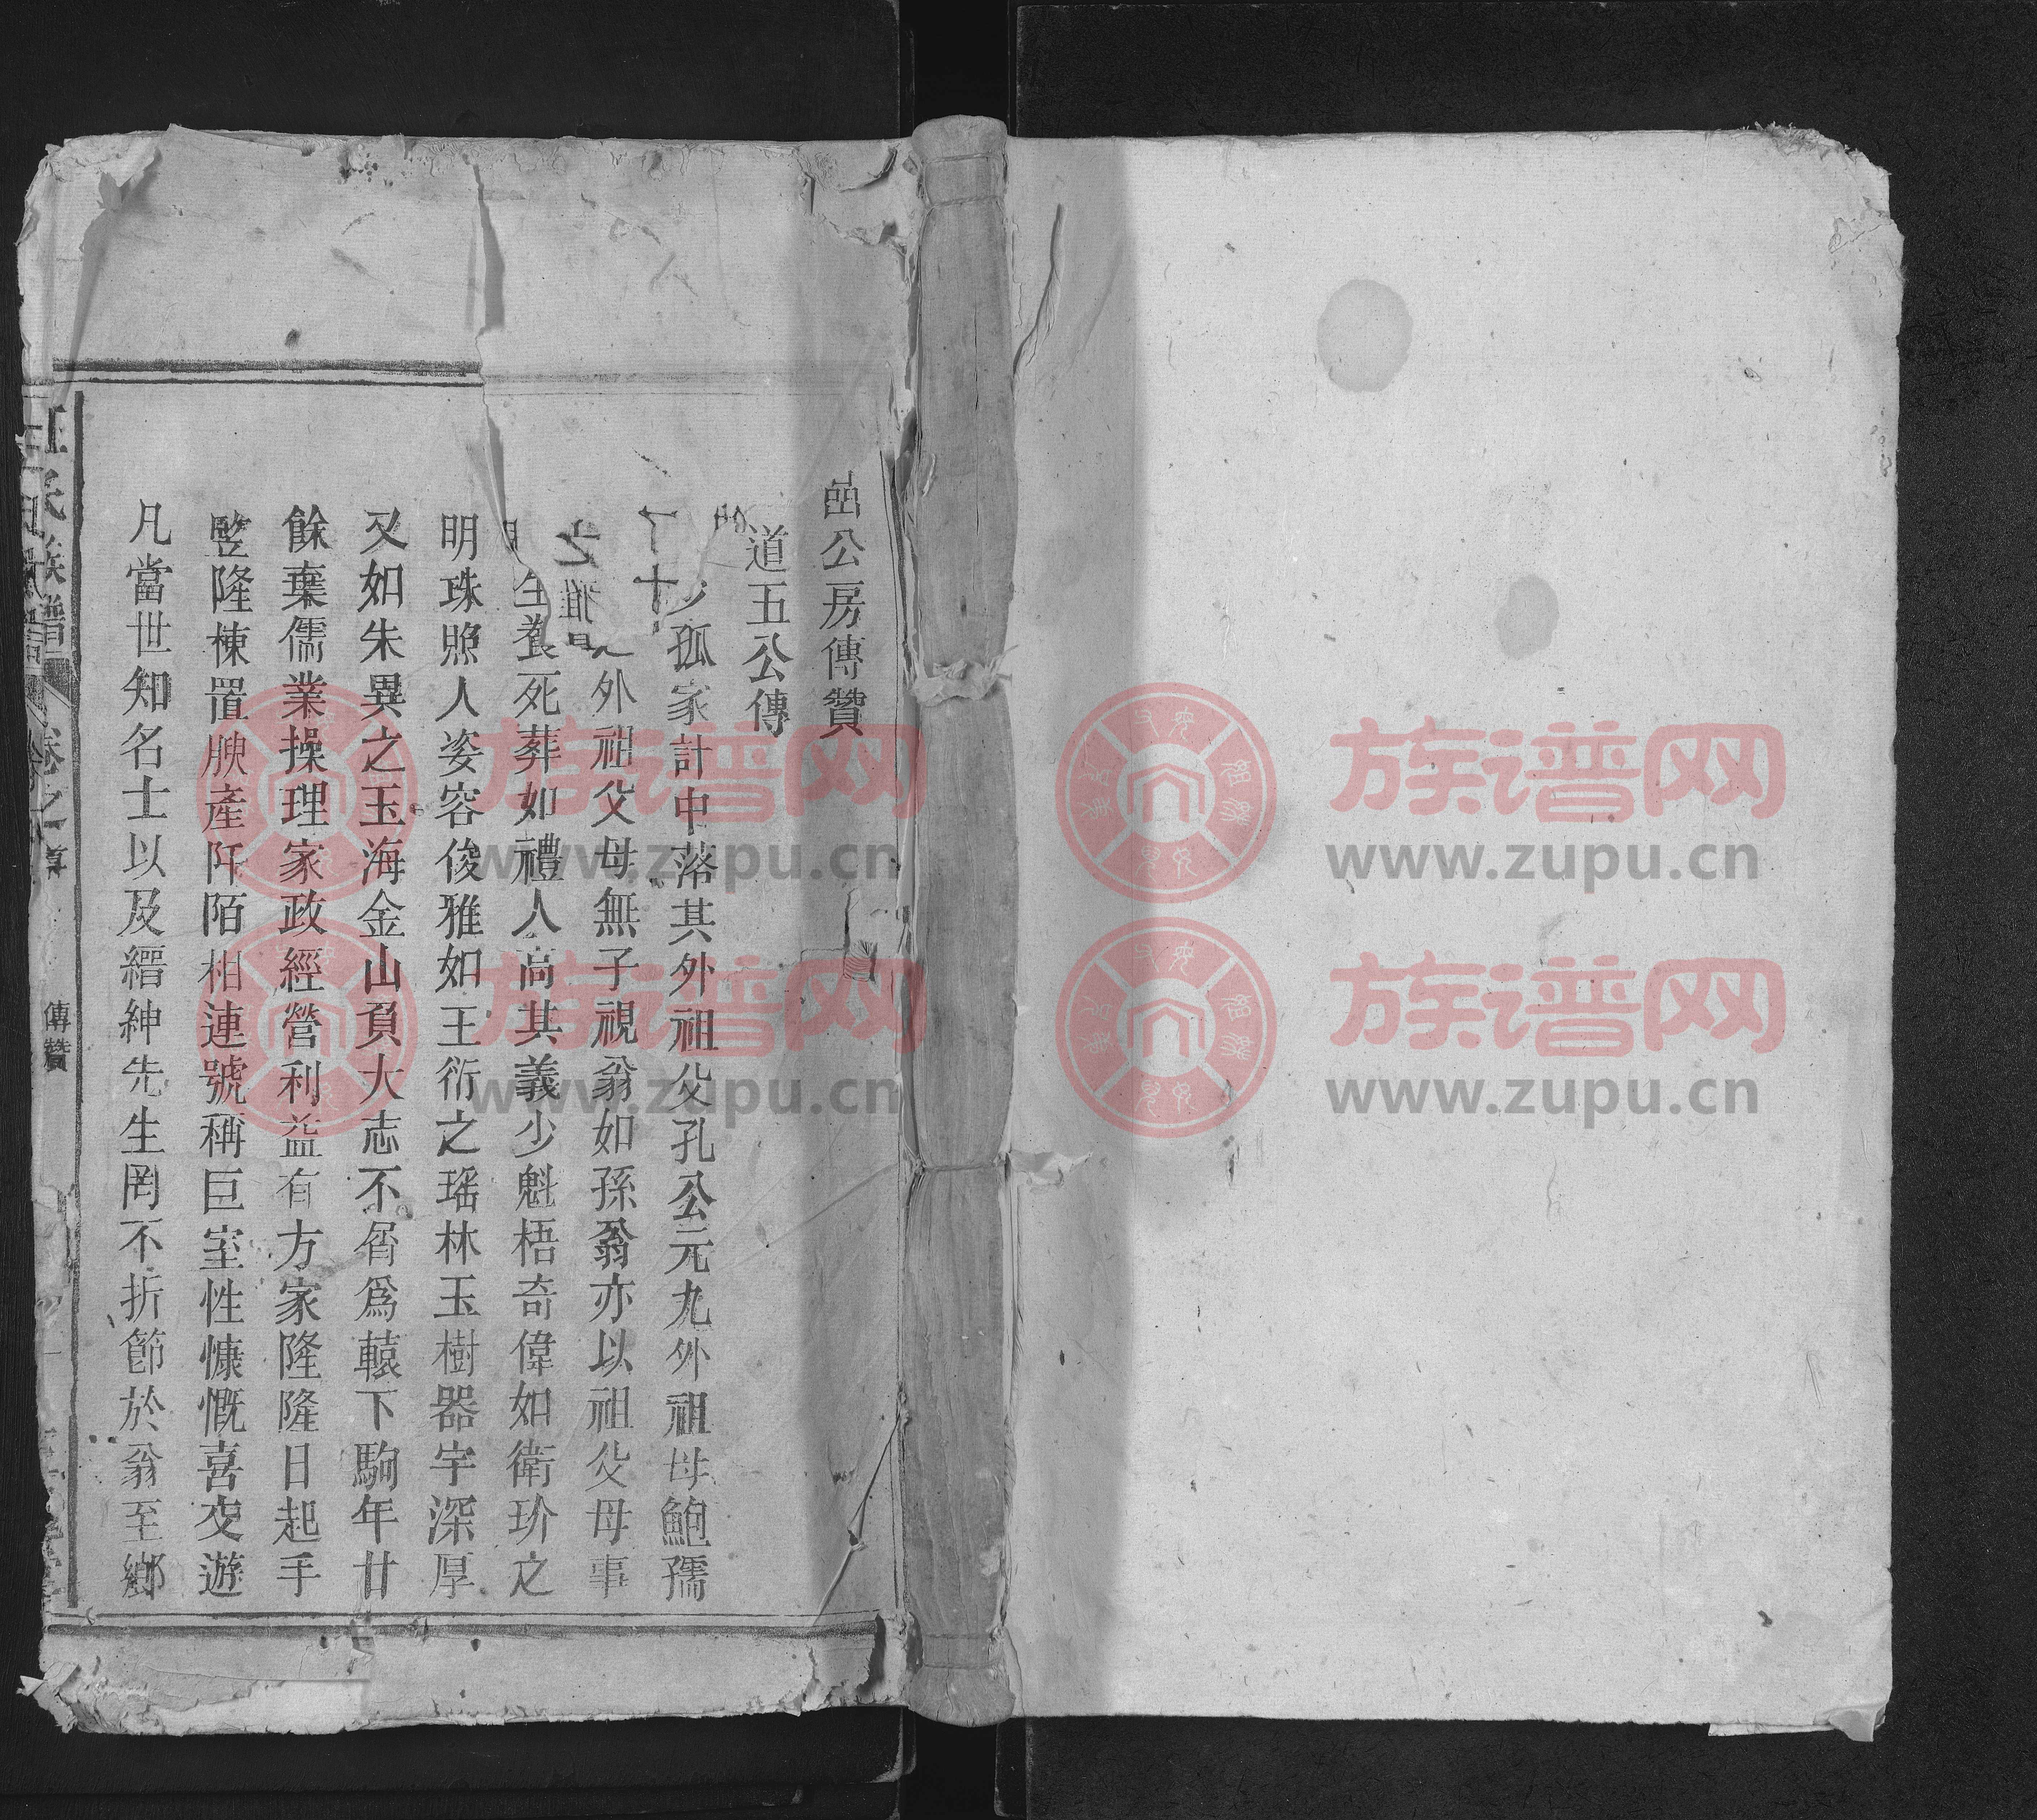 嵒公房傳贊
道五公傳
孤家計中落其外祖父孔公元九外祖母鮑孺
外祖父母無子視翁如孫翁亦以祖父母事
之雅
生養死葬如禮人高其義少魁梧奇偉如衛玠之
明珠照人姿容俊雅如王衍之瑤林玉樹器宇深厚
又如朱異之玉海金山負大志不屑爲轅下駒年廿
餘棄儒業操理家政經營利益有方家隆隆日起手
竪隆棟置腴產阡陌相連號稱巨室性慷慨喜交遊
凡當世知名士以及縉紳先生罔不折節於翁至鄉
汪氏族譜
卷之
傳贊
族谱网
www.zupu.cn
族谱网
www.zupu.cn
族谱网
www.zupu.cn
族谱网
www.zupu.cn